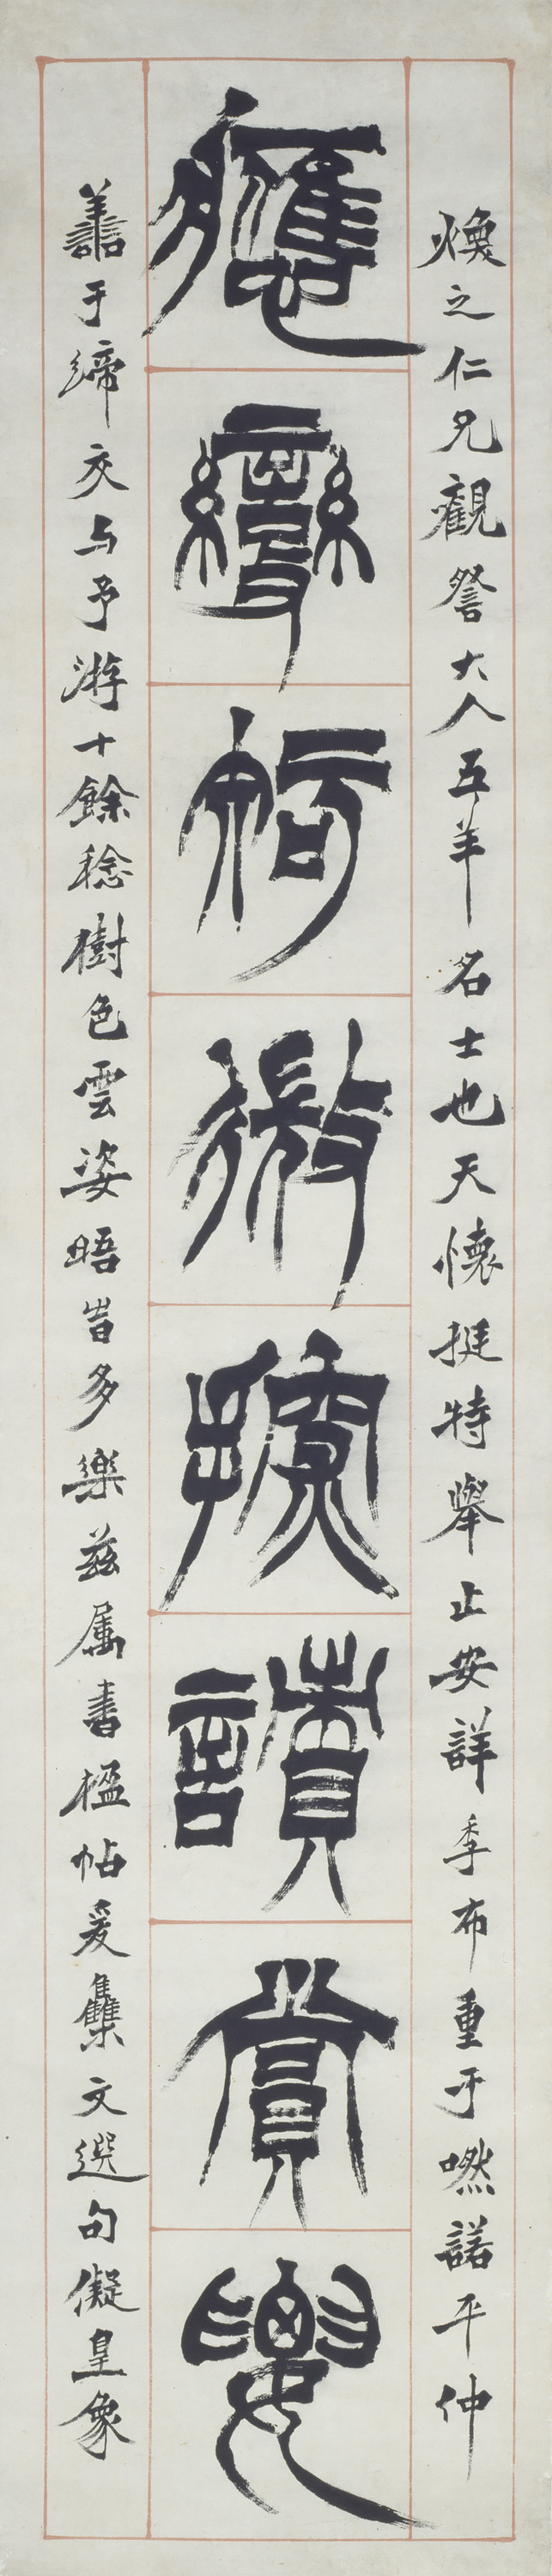 煥之仁兄觀詧大人五羊名士也天懷挺特舉止安詳季布重于嘫諾平仲
應變知微探賾賞要
譱于締交与予游十餘稔樹色雲姿晤旹多樂茲属書楹帖爰集文選句儗皇象